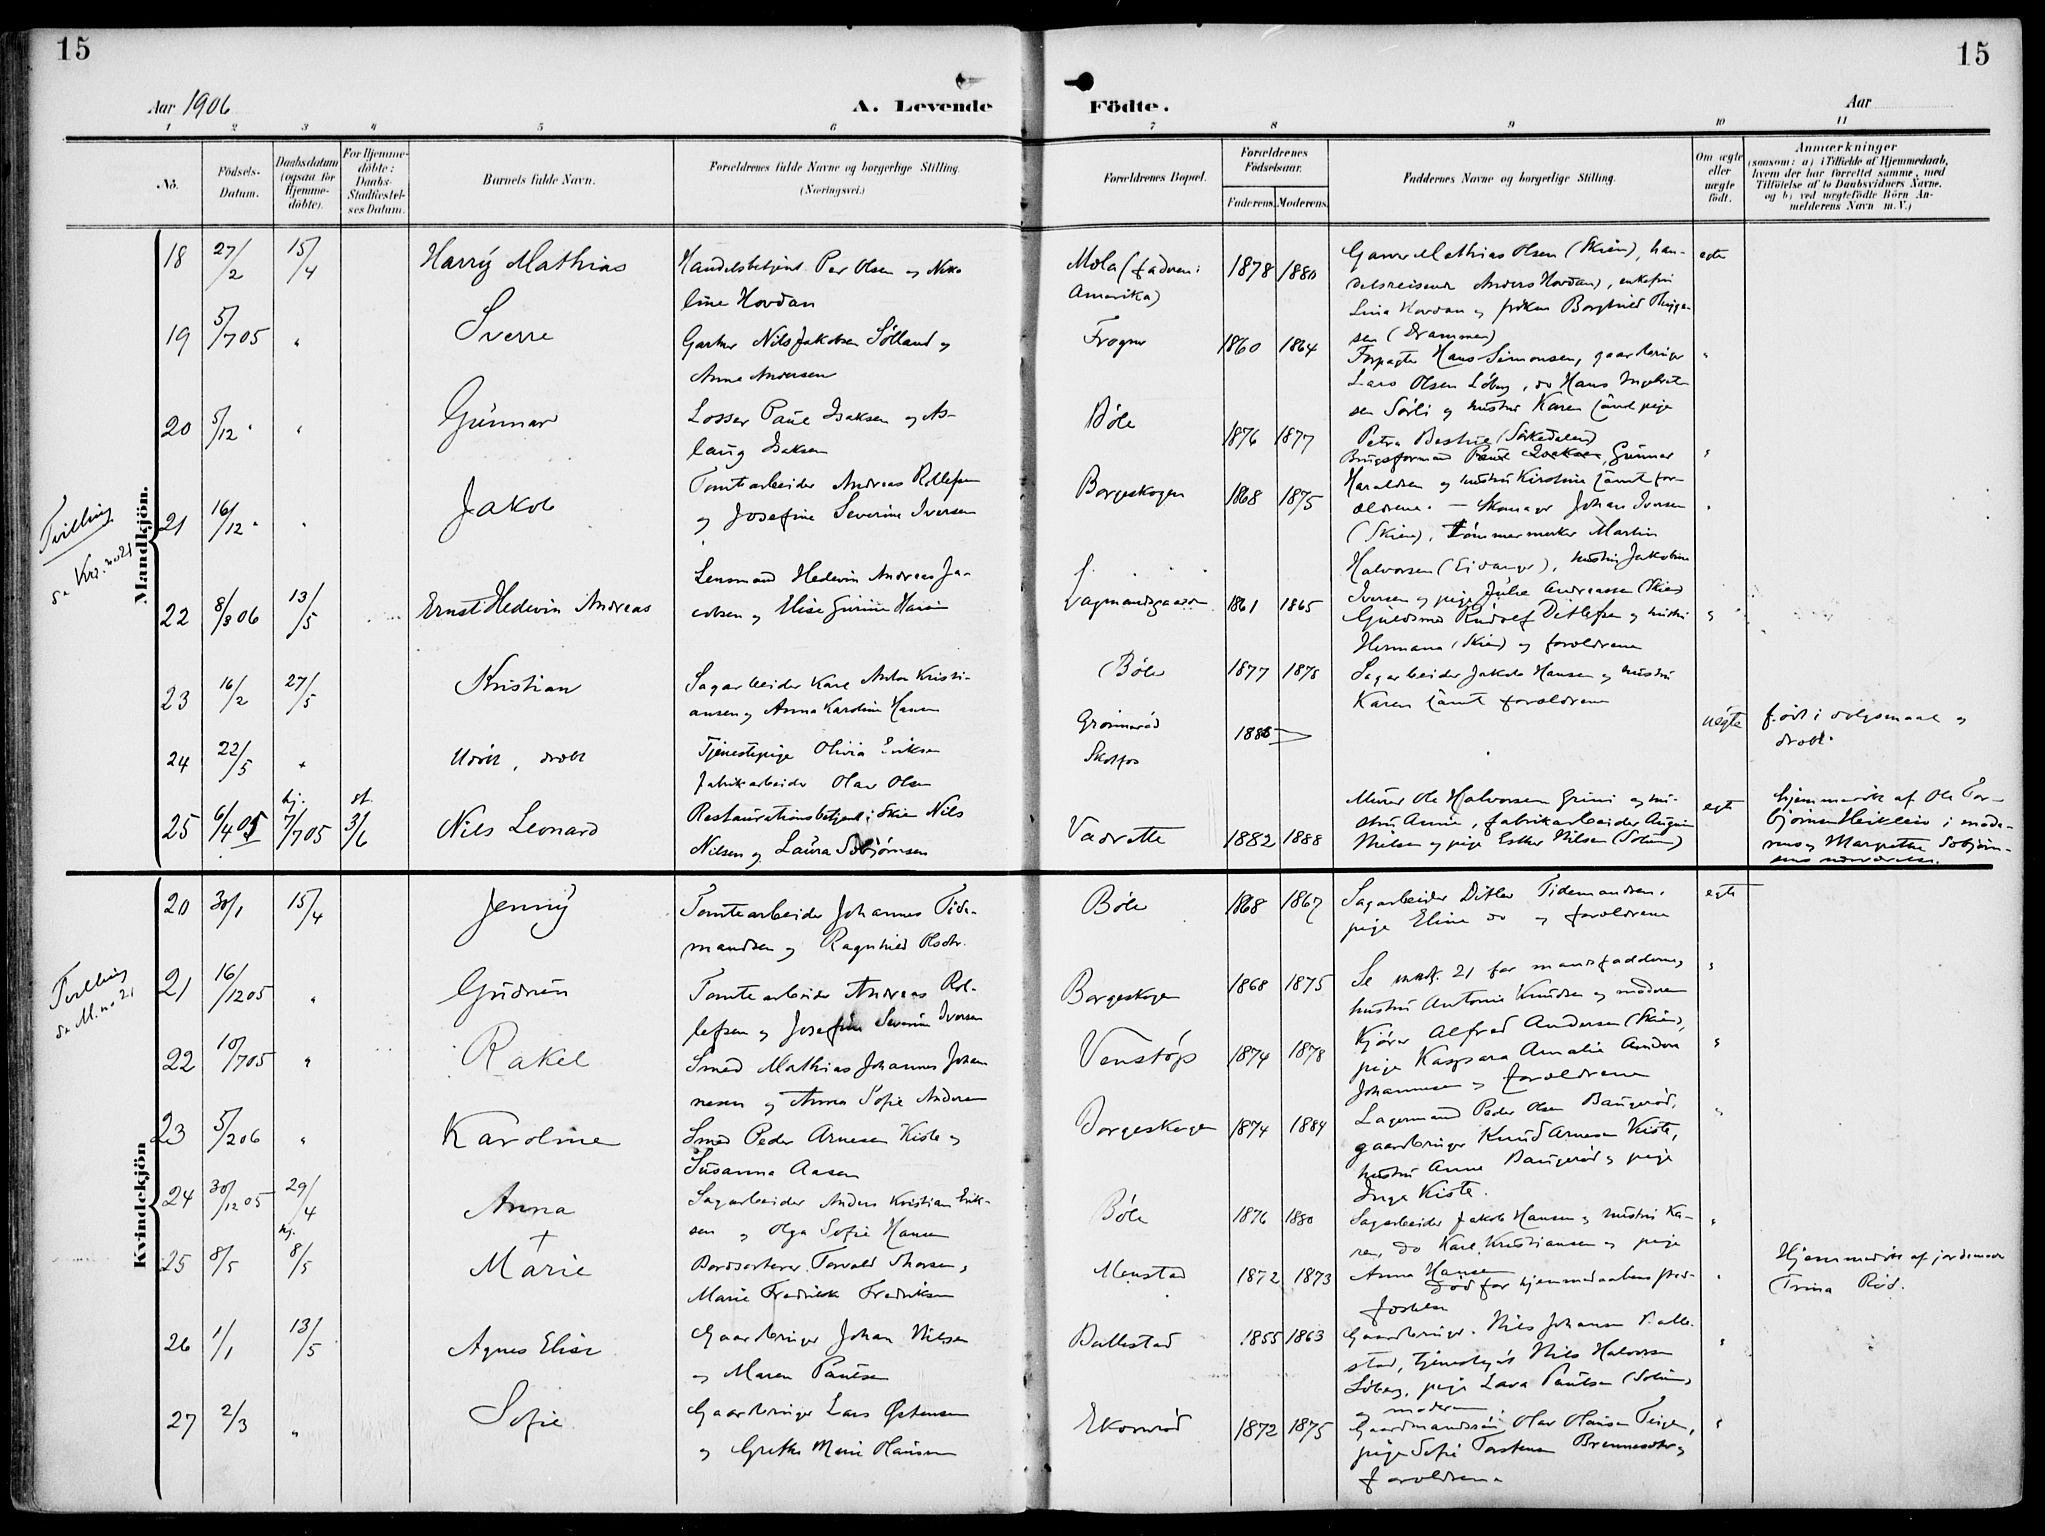 15
15
Aar 1906
A. Levende
Födte.
Aar
1 2 3 4 5 6 7 8 9 10 11
No.
Födsels-
Datum.
Daabsdatum
(ogsaa for
Hjemme-
döbte).
For Hjemme-
döbte:
Daabs-
Stadfæstel-
ses Datum.
Barnets fulde Navn.
Forældrenes fulde Navne og borgerlige Stilling.
(Næringsvei.)
Forældrenes Bopæl.
Forældrenes
Födselsaar.
Faderens. Moderens.
Faddernes Navne og borgerlige Stilling.
Om ægte
eller
uægte
födt.
Anmærkninger
(saasom: a) i Tilfælde af Hjemmedaab,
hvem der har forrettet samme, med
Tilföielse af to Daabsvidners Navne,
og b) ved uægtefödte Börn An-
melderens Navn m. V.)
Mandkjön.
18 27/2 15/4 Harry Mathias
Handelsbetjent Per Olsen og Niko
line Hovdan
Mela (faderen i
Amerika)
1878 1880
Garver Mathias Olsen (Skien), han-
delsreisende Anders Hovdan, enkefru
Lina Hovdan og frøken Borghild
sen (Drammen)
egte
19 5/7 05 " Sverre
Gartner Nils Jakobsen Sølland og
Anna Andersen
Frogner
1860 1864
Forpagter Hans Simonsen, gaardbruger
Lars Olsen Løberg, do Hans Ingebret-
sen Sørli og hustru Karen samt pige
Petra (Sørkedalen)
"
20 5/12 " " Gunnar
Losser Paul Isaksen og As-
laug Isaksen
Bøle
1876 1877
Brugsformand Paul Isaksen, Gunnar
Haraldsen og hustru Kirstine samt for-
ældrene.
"
Tvilling
se Kv. no 21
21 16/12 " " Jakob
Tomtearbeider Andreas Rollefsen
og Josefine Severine Iversen
Borgeskogen
1868 1875
— Skomager Johan Iversen
(Skien), Tømmermerker Martin
Halvorsen (Eidanger), hustru Jakobine
Iversen og pige Julie Andreassen (Skien)
"
22 8/3 06 13/5 Ernst Hedevin Andreas
Lensmand Hedevin Andreas Ja-
cobsen og Elise Gurine Hansen
Lagmandsgaarden
1861 1865
Guldsmed Rudolf Ditlefsen og hustru
Hermana (Skien) og forældrene
"
23 16/2 27/5 Kristian
Sagarbeider Karl Anton Kristi-
ansen og Anna Karoline Hansen
Bøle
1877 1878
Sagarbeider Jakob Hansen og hustru
Karen samt forældrene
24 22/5 + Udøbt, drobt
Tjenestepige Olivia Eriksen
Fabrikarbeider Olav Olsen
Grönnerød
Skotfos
1886
uegte
født i dølgsmaal og
dræbt.
25 6/4 05 hj. 7/7 05 st. 3/6 Nils Leonard
Restaurationsbetjent i Skien Nils
Nilsen og Laura Solbjørnsen
Vadrette
1882 1888
Murer Ole Halvorsen Grini og hu-
stru Anne, fabrikarbeider August
Nielsen og pige Esther Nilsen (Solum)
egte
hjemmedøbt af Ole Tor-
bjørnsen i mode-
rens og Margrethe Solbjørn-
sens nærværelse.
Kvindekjön
20 30/1 15/4 Jenny
Tomtearbeider Johannes Tide-
mandsen og Ragnhild Olsdtr.
Bøle
1868 1867
Sagarbeider Ditlev Tidemandsen,
pige Eline do og forældrene
egte
Tvilling
se M. no 21
21 16/12 05 " Gudrun
Tomtearbeider Andreas Rol-
lefsen og Josefine Severine Iversen
Borgeskogen
1868 1875
Se mandk. 21 for mandsfadderne,
hustru Antonie Knudsen og moderen
"
22 10/7 05 " Rakel
Smed Mathias Johannes Johan
nesen og Anna Sofie Andersen
Venstøp
1874 1878
Kjører Alfred Andersen (Skien),
pige Kaspara Amalie Amanda
Johannesen og forældrene
"
23 5/2 06 " Karoline
Smed Peder Arnesen Kiste og
Susanna Aasen
Borgeskogen
1874 1884
Lagermand Peder Olsen Baugerød,
gaardbruger Knud Arnesen Kiste,
hustru Anne Baugerød og pige
Inga Kiste.
"
24 30/12 05 29/4 Anna
Sagarbeider Anders Kristian Erik-
sen og Olga Sofie Hansen
Bøle
1876 1880
Sagarbeider Jakob Hansen og hustru Ka-
ren, do Karl Kristiansen og pige
Anna Hansen
"
25 8/5 hj. 8/5 † Marie
Bordsorterer Torvald Thorsen,
Marie Fredrikke Fredriksen
Menstad
1872 1873
Død før hjemmedaabens stad-
fæstelse
"
Hjemmedøbt af jordemoder
Trina Rød.
26 1/1 13/5 Agnes Elise
Gaardbruger Johan Nilsen
og Maren Paulsen
Ballestad
1855 1863
Gaardbruger Nils Johansen Balle-
stad, tjenestegut Nils Halvorsen
Løberg, pige Lava Paulsen (Solum)
og moderen
"
27 2/3 " Sofie
Gaardbruger Lars Østensen
og Grethe Marie Hansen
Ekornrød
1872 1875
Gaardmandssøn Olav Hansen Teigen,
pige Sofie Torstensen og
forældrene
"